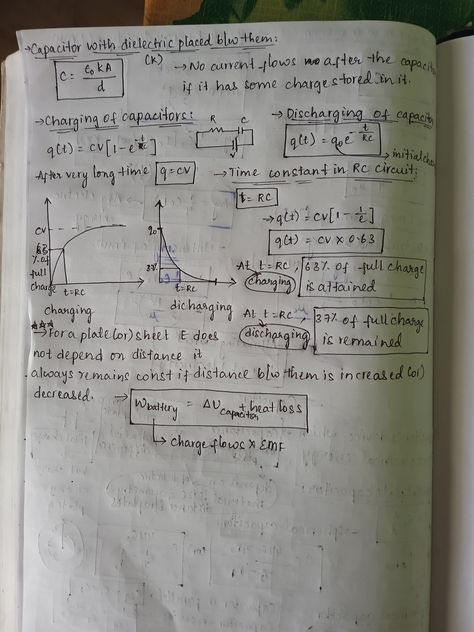 →Capacitor with dielectric placed b/w them:
(K)
C = ε₀kA/d
→No current flows after the capacit
if it has some charge stored in it.
→Charging of capacitors:
q(t) = CV[1-e^-t/RC]
After very long time q=CV
R
C
→Discharging of capacito
q(t) = q₀e^-t/RC
→initial cha
→Time constant in RC circuit:
t=RC
→q(t) = CV[1-1/e]
q(t) = CV×0.63
CV
63
% of
full
charge
t=RC
charging
q₀
37%
t=RC
dicharging
At t=RC, 63% of full charge
charging is attained
At t=RC → 37% of full charge
discharging is remained
→For a plate(or) sheet E does
not depend on distance it
always remains const if distance b/w them is increased (or)
decreased.
→ Wbattery = ΔUcapacitor + heat loss
→ charge flows × EMF